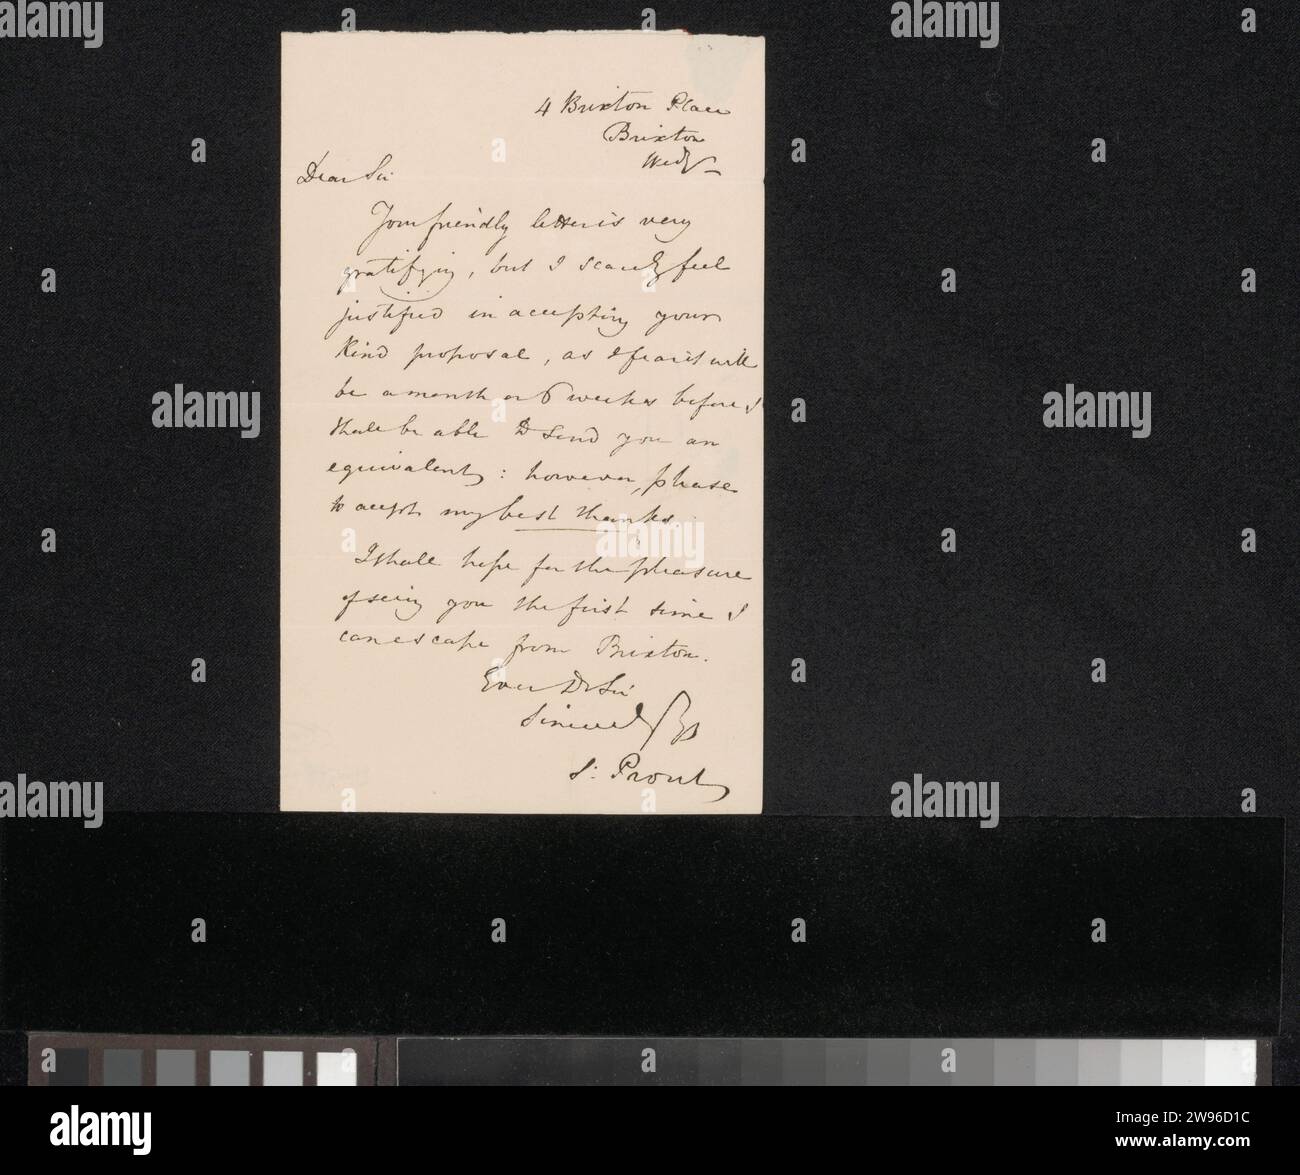 4 Brixton Place
Brixton
Wedy
Dear Sir
Your friendly letter is very
gratifying, but I scarcely feel
justified in accepting your
kind proposal, as I fear it will
be a month or 6 weeks before I
shall be able to send you an
equivalent: however, please
to accept my best thanks.
I shall hope for the pleasure
of seeing you the first time I
can escape from Brixton.
Ever Dr Sir
Sincerely Yrs
S: Prout
alamy
Image ID: 2W96D1C
www.alamy.com